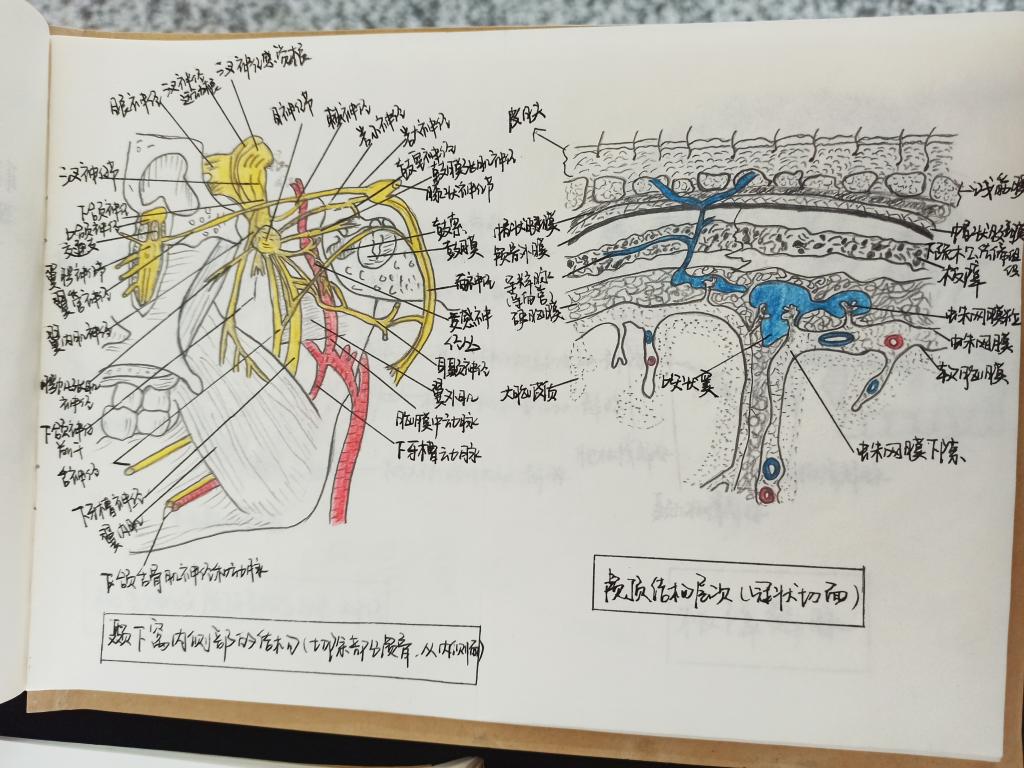 三叉神经感觉根
三叉神经
运动根
眼神经
耳神经节
面神经
岩小神经
岩大神经
鼓索神经
鼓膜张肌神经
膝状神经节
三叉神经节
下颌神经
上颌神经
交通支
翼腭神经节
翼管神经
翼内肌神经
神经
下颌神经
前干
舌神经
下牙槽神经
翼内肌
下颌舌骨肌神经和动脉
鼓索
鼓膜
面神经
交感神
经丛
耳颞神经
翼外肌
脑膜中动脉
下牙槽动脉
颞下窝内侧部的结构(切除部分腭骨,从内侧面)
皮肤
帽状腱膜
颅骨外膜
导静脉
导血管
硬脑膜
大脑皮质
蛛网膜粒
蛛网膜
软脑膜
蛛网膜下隙
板障
颅顶结构层次(冠状切面)